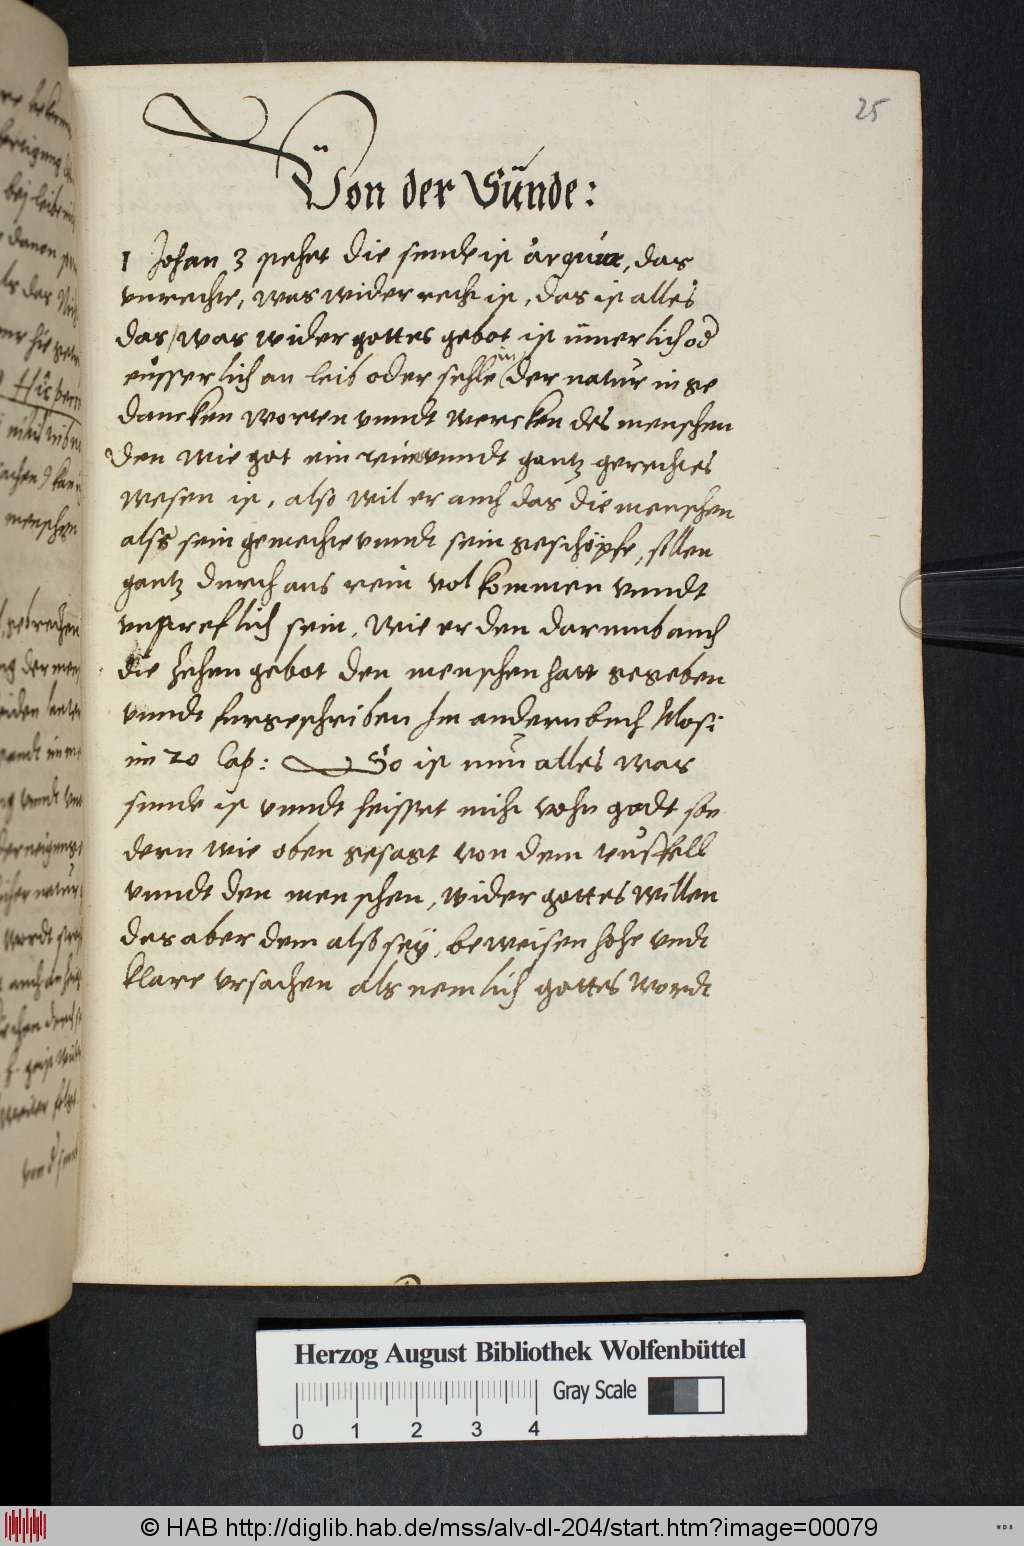 25
Von der Sünde:
1 Johan 3 stehet die sunde ist das
vnrechte, was wider recht ist, das ist alles
das, was wider gottes gebot ist innerlich od
eüsserlich an leib oder sehle in der natur in ge
dancken worten vnndt wercken des menschen
den wie got ein rein vnndt gantz gerechtes
wesen ist, also wil er auch das die menschen
alss sein gemechte vnndt sein geschöpfe, sollen
gantz durch aus rein vol kommen vnndt
vnstreflich sein, wie er den darumb auch
die zehen gebot den menschen hatt gegeben
vnndt furgeschriben Im andern buch Mosi
im 20 Cap: So ist nun alles was
sunde ist vnndt heisset nicht vohn godt son
dern wie oben gesagt von dem teuffell
vnndt den menschen, wider gottes willen
das aber dem alß sey, beweisen hohe vndt
klare vrsachen als nemlich gottes wordt
Herzog August Bibliothek Wolfenbüttel
0 1 2 3 4
Gray Scale
© HAB http://diglib.hab.de/mss/alv-dl-204/start.htm?image=00079